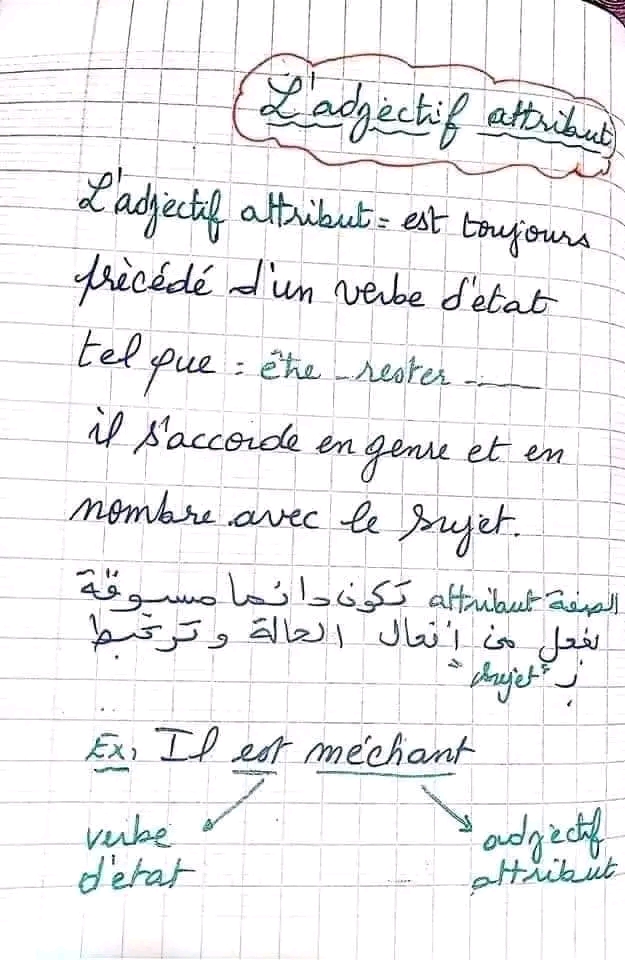 L'adjectif attribut
L'adjectif attribut = est toujours
précédé d'un verbe d'état
tel que : être - rester - ___
il s'accorde en genre et en
nombre avec le sujet.
الصفة attribut تكون دائما مسبوقة
بفعل من أفعال الحالة وترتبط
بـ "sujet"
Ex, Il est méchant
verbe d'état
adjectif attribut